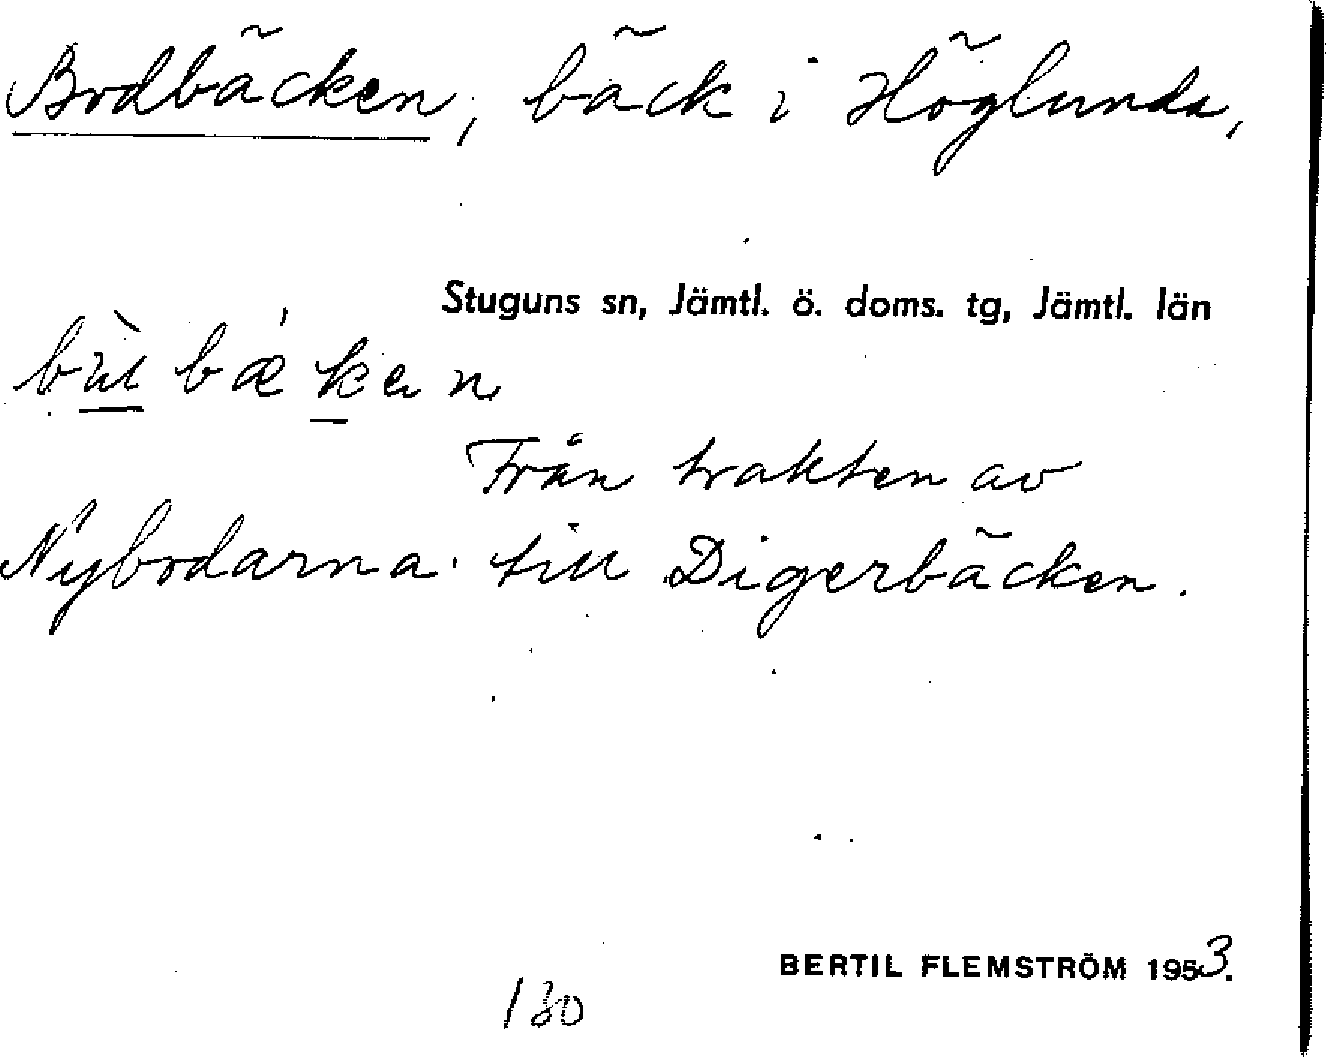 Bodbäcken, bäck i Höglunda,
Stuguns sn, Jämtl. ö. doms. tg, Jämtl. län
Från trakten av
Nybodarna till Digerbäcken.
BERTIL FLEMSTRÖM 1953.
130